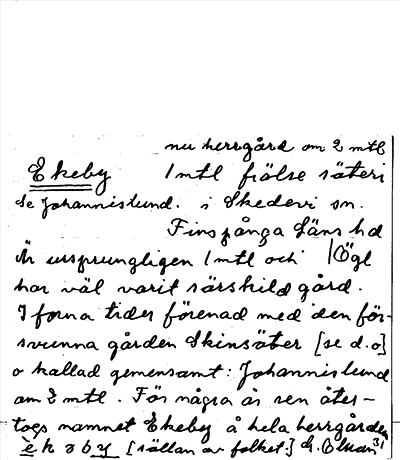 nu herrgård om 2 mtl
Ekeby 1 mtl frälse säteri
se Johannislund. i Skedevi sn.
Finspånga läns hd
Är ursprungligen 1 mtl och | Ögl
har väl varit särskild gård.
I forna tider förenad med den för-
svunna gården Skinsäter [se d.o]
o kallad gemensamt: Johannislund
om 2 mtl. För några år sen åter-
togs namnet Ekeby å hela herrgården
[sällan av folket.]